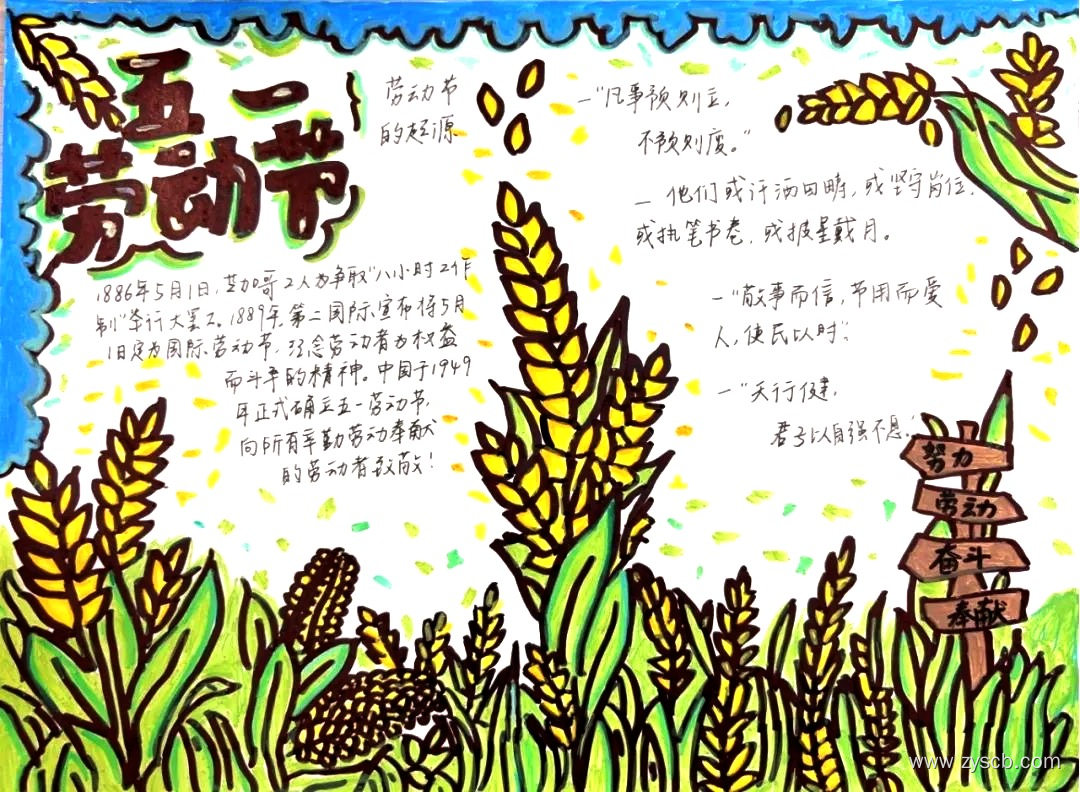 五一
劳动节
劳动节
的起源
1886年5月1日,芝加哥工人为争取"八小时工作
制"举行大罢工。1889年,第二国际宣布将5月
1日定为国际劳动节,纪念劳动者为权益
而斗争的精神。中国于1949
年正式确立五一劳动节,
向所有辛勤劳动奉献
的劳动者致敬!
—"凡事预则立,
不预则废。"
— 他们或汗洒田畴,或坚守岗位,
或执笔书卷,或披星戴月。
—"敬事而信,节用而爱
人,使民以时"。
—"天行健,
君子以自强不息。"
努力
劳动
奋斗
奉献
www.zyscb.com